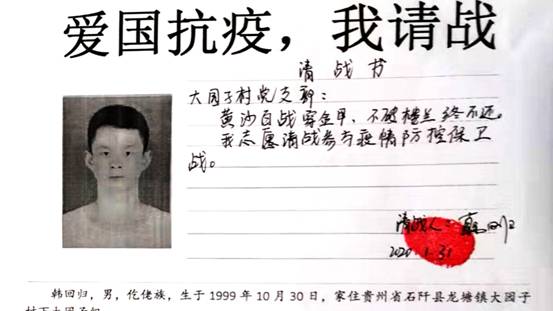 爱国抗疫，我请战
请战书
大园子村党支部：
黄沙百战穿金甲，不破楼兰终不还。
我志愿请战参与疫情防控保卫
战。
请战人：
2020.1.31
韩回归，男，仡佬族，生于1999年10月30日，家住贵州省石阡县龙塘镇大园子